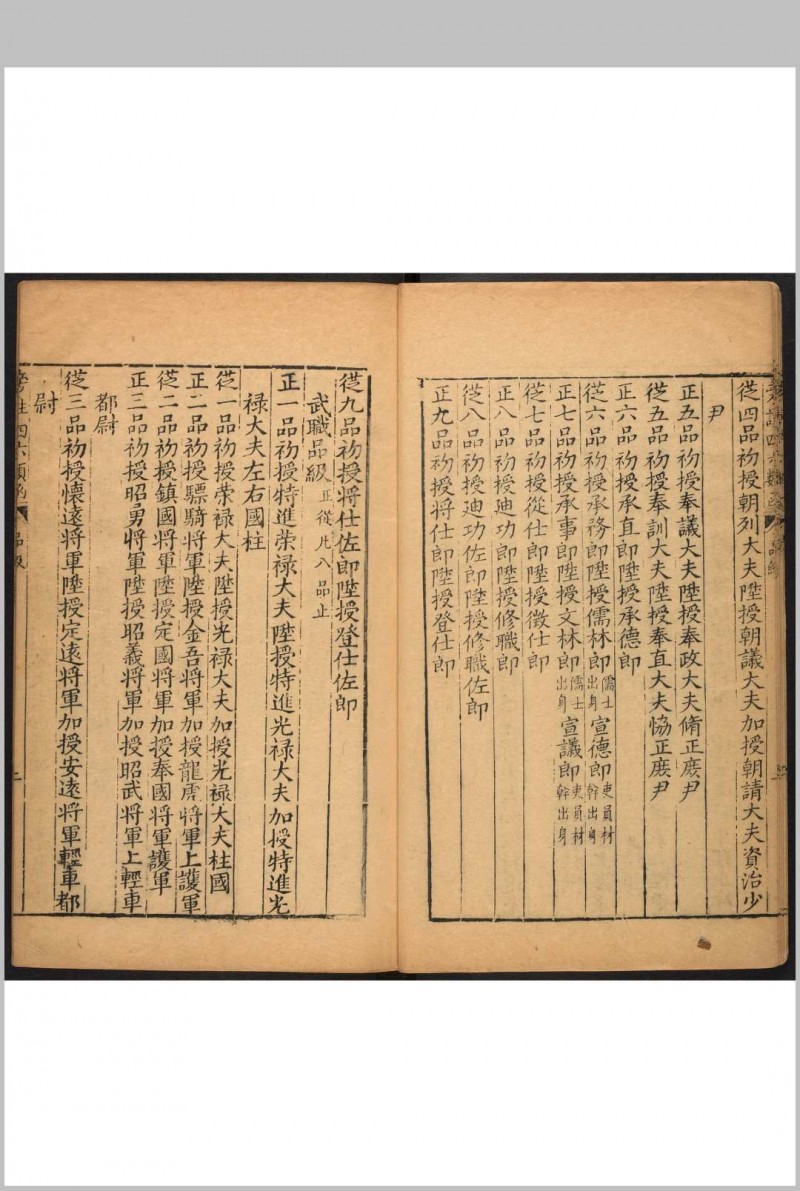 從四品初授朝列大夫陞授朝議大夫加授朝請大夫資治少
尹
正五品初授奉議大夫陞授奉政大夫脩正庶尹
從五品初授奉訓大夫陞授奉直大夫協正庶尹
正六品初授承直郎陞授承德郎
從六品初授承務郎陞授儒林郎儒士出身宣德郎吏員材幹出身
正七品初授承事郎陞授文林郎儒士出身宣議郎吏員材幹出身
從七品初授從仕郎陞授徵仕郎
正八品初授迪功郎陞授修職郎
從八品初授迪功佐郎陞授修職佐郎
正九品初授將仕郎陞授登仕郎
從九品初授將仕佐郎陞授登仕佐郎
武職品級正從凡八品止
正一品初授特進荣禄大夫陞授特進光禄大夫加授特進光
禄大夫左右國柱
從一品初授荣禄大夫陞授光禄大夫加授光禄大夫柱國
正二品初授驃騎將軍陞授金吾將軍加授龍虎將軍上護軍
從二品初授鎮國將軍陞授定國將軍加授奉國將軍護軍
正三品初授昭勇將軍陞授昭義將軍加授昭武將軍上輕車
都尉
從三品初授懷遠將軍陞授定遠將軍加授安遠將軍輕車都
尉
四六類函 品級 二